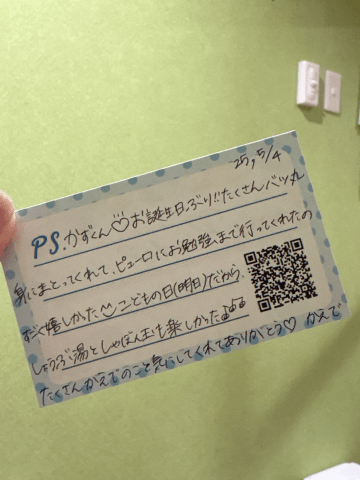 25, 5/4
PS. かずくん♡お誕生日ぶり!!たくさんバツ丸
身にまとってくれて、ピューロにお勉強まで行ってくれたの
すごく嬉しかった こどもの日(明日)だから、
しょうぶ湯としゃぼん玉も楽しかった
たくさんかえでのこと気にしてくれてありがとう♡ かえで